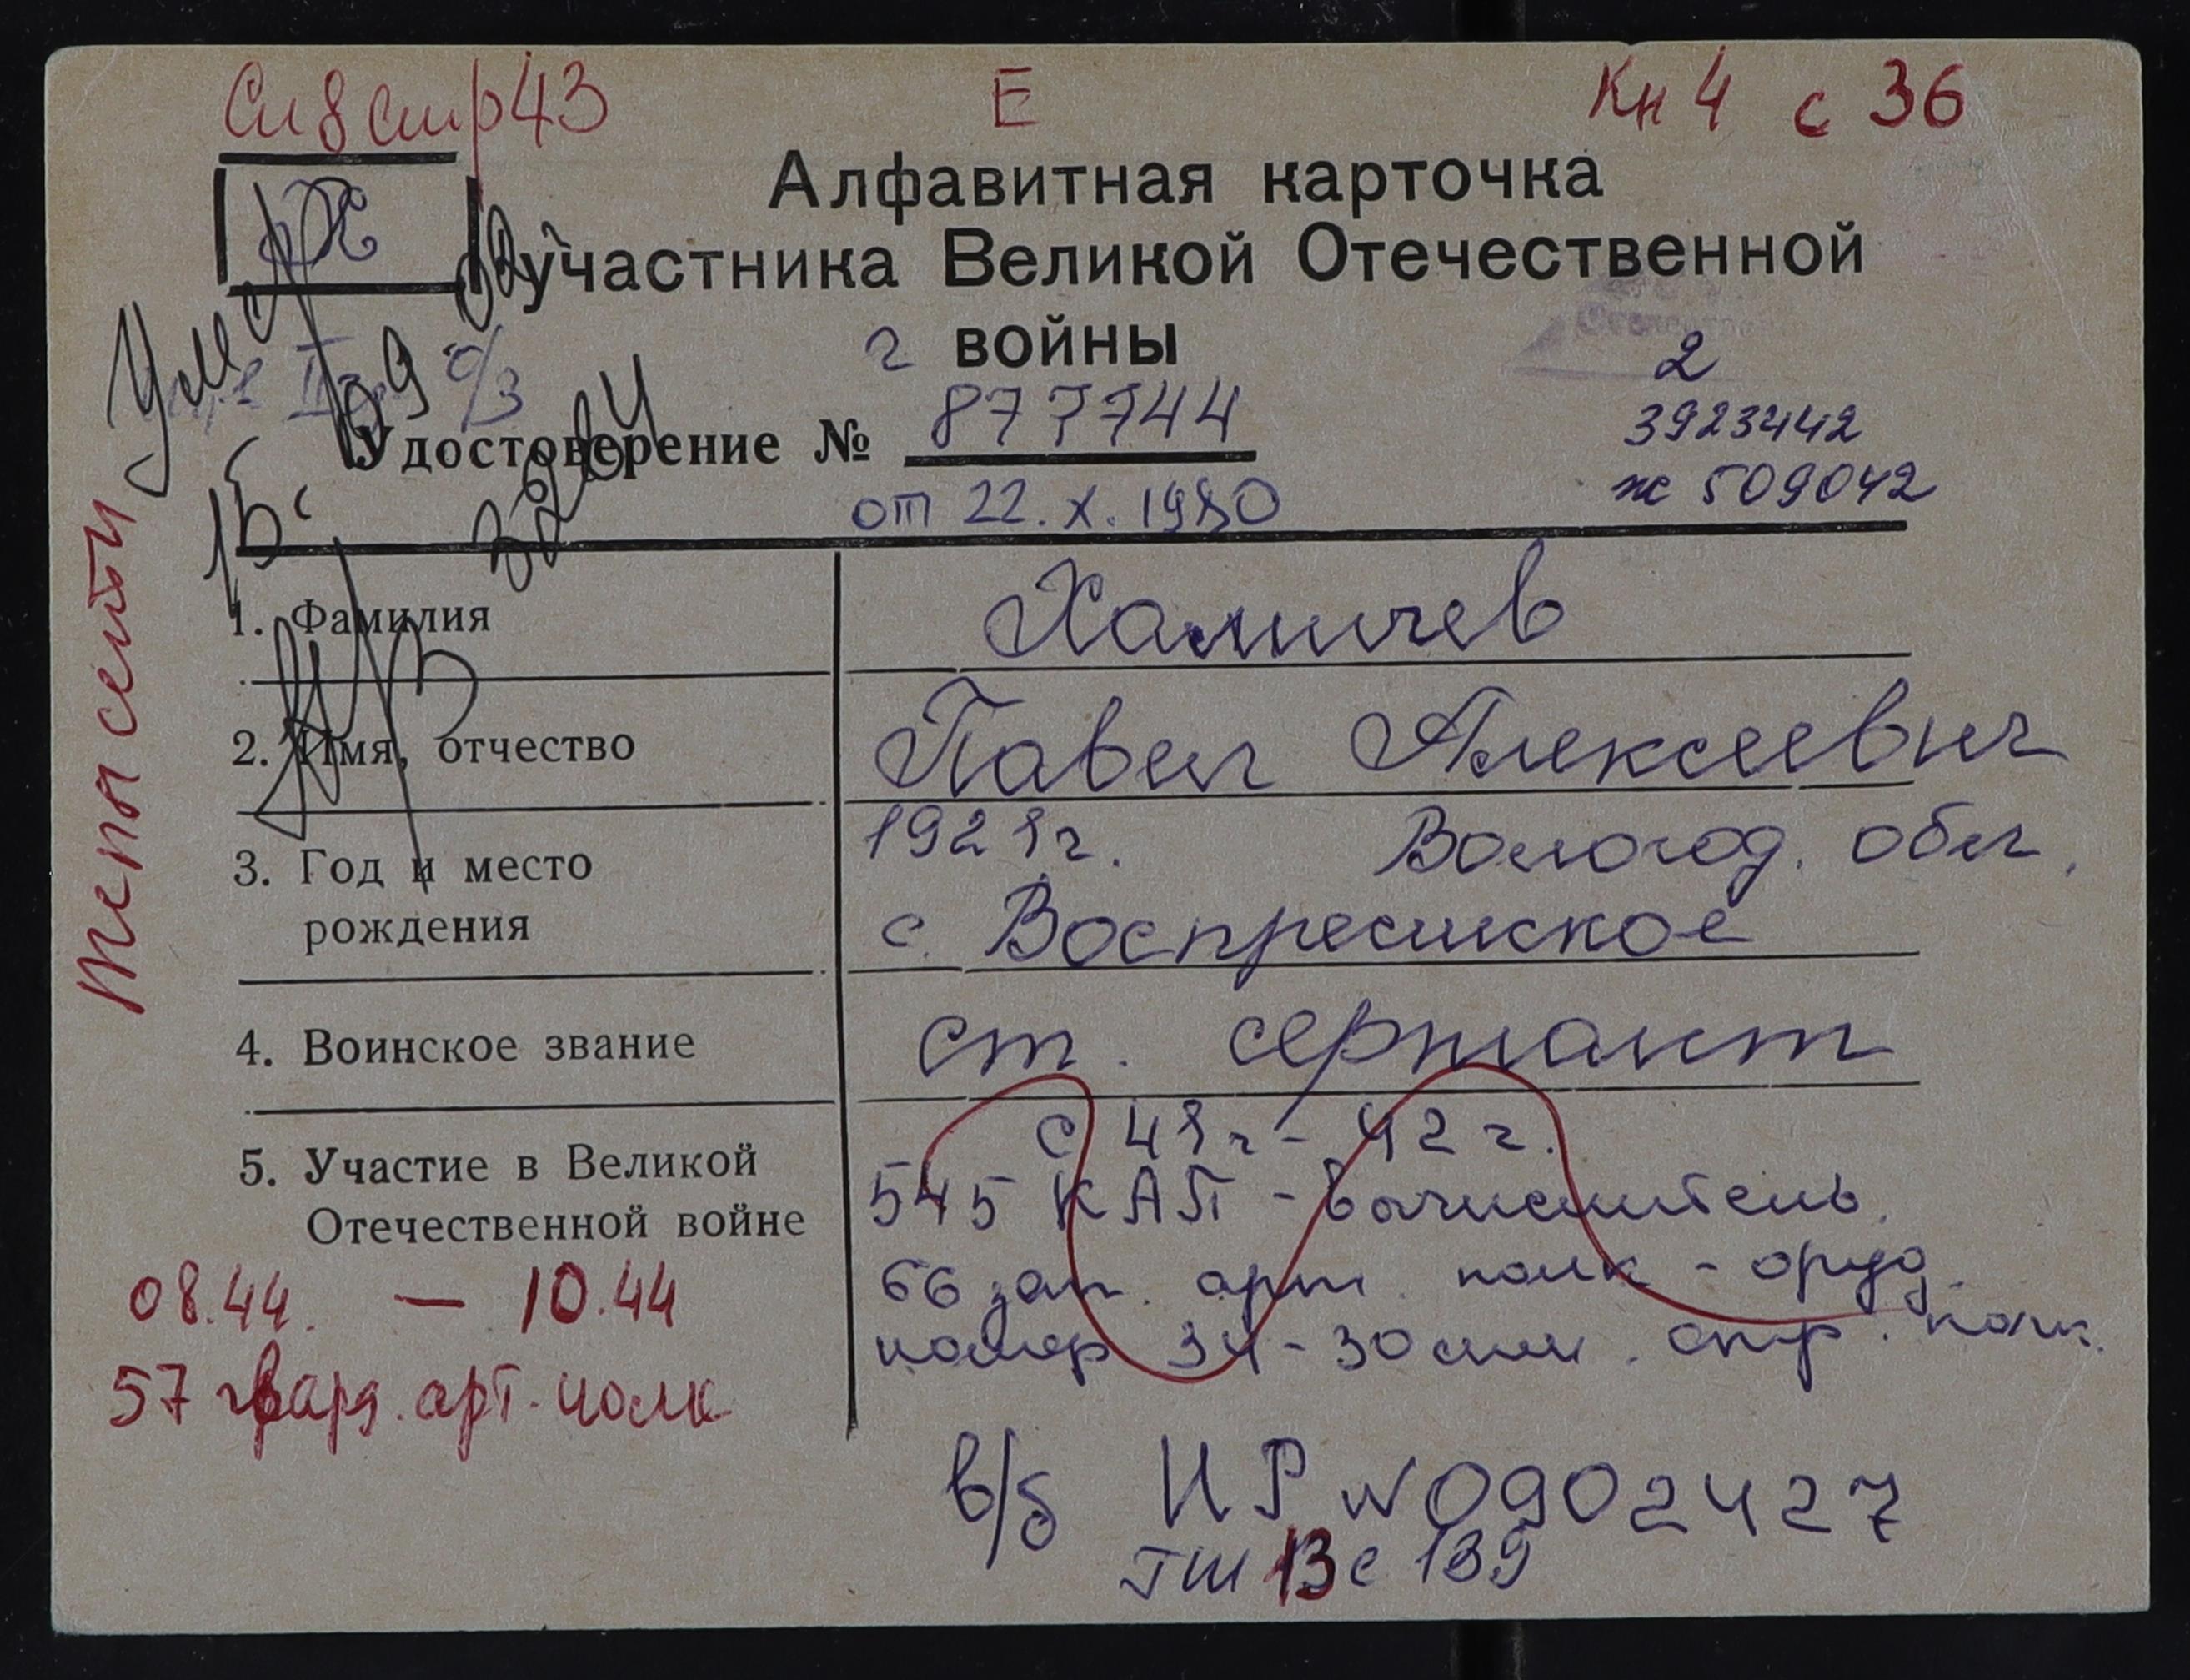 Сп 8 стр 43
Е
Кн 4 с 36
Х
Алфавитная карточка
участника Великой Отечественной
войны
г
Умер
15.09
Удостоверение № 877744
от 22.X.1980
2
3923442
ж 509042
Члены семьи
1. Фамилия Халтичев
2. Имя, отчество Павел Алексеевич
3. Год и место рождения 1921г. Вологод. обл.
с. Воспресинское
4. Воинское звание ст. сержант
5. Участие в Великой Отечественной войне
с 41г - 42г.
545 КАП - вычислитель
66 зап. арт. полк - оруд.
номер 34 - 30 мм. стр. полк.
08.44. — 10.44
57 гвард. арт. полк
в/б НР №0902427
ГШ 13 с 139